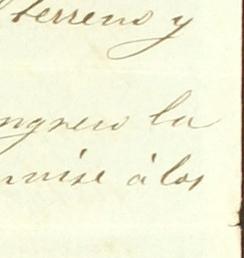 terreno y
ngreso la
á los